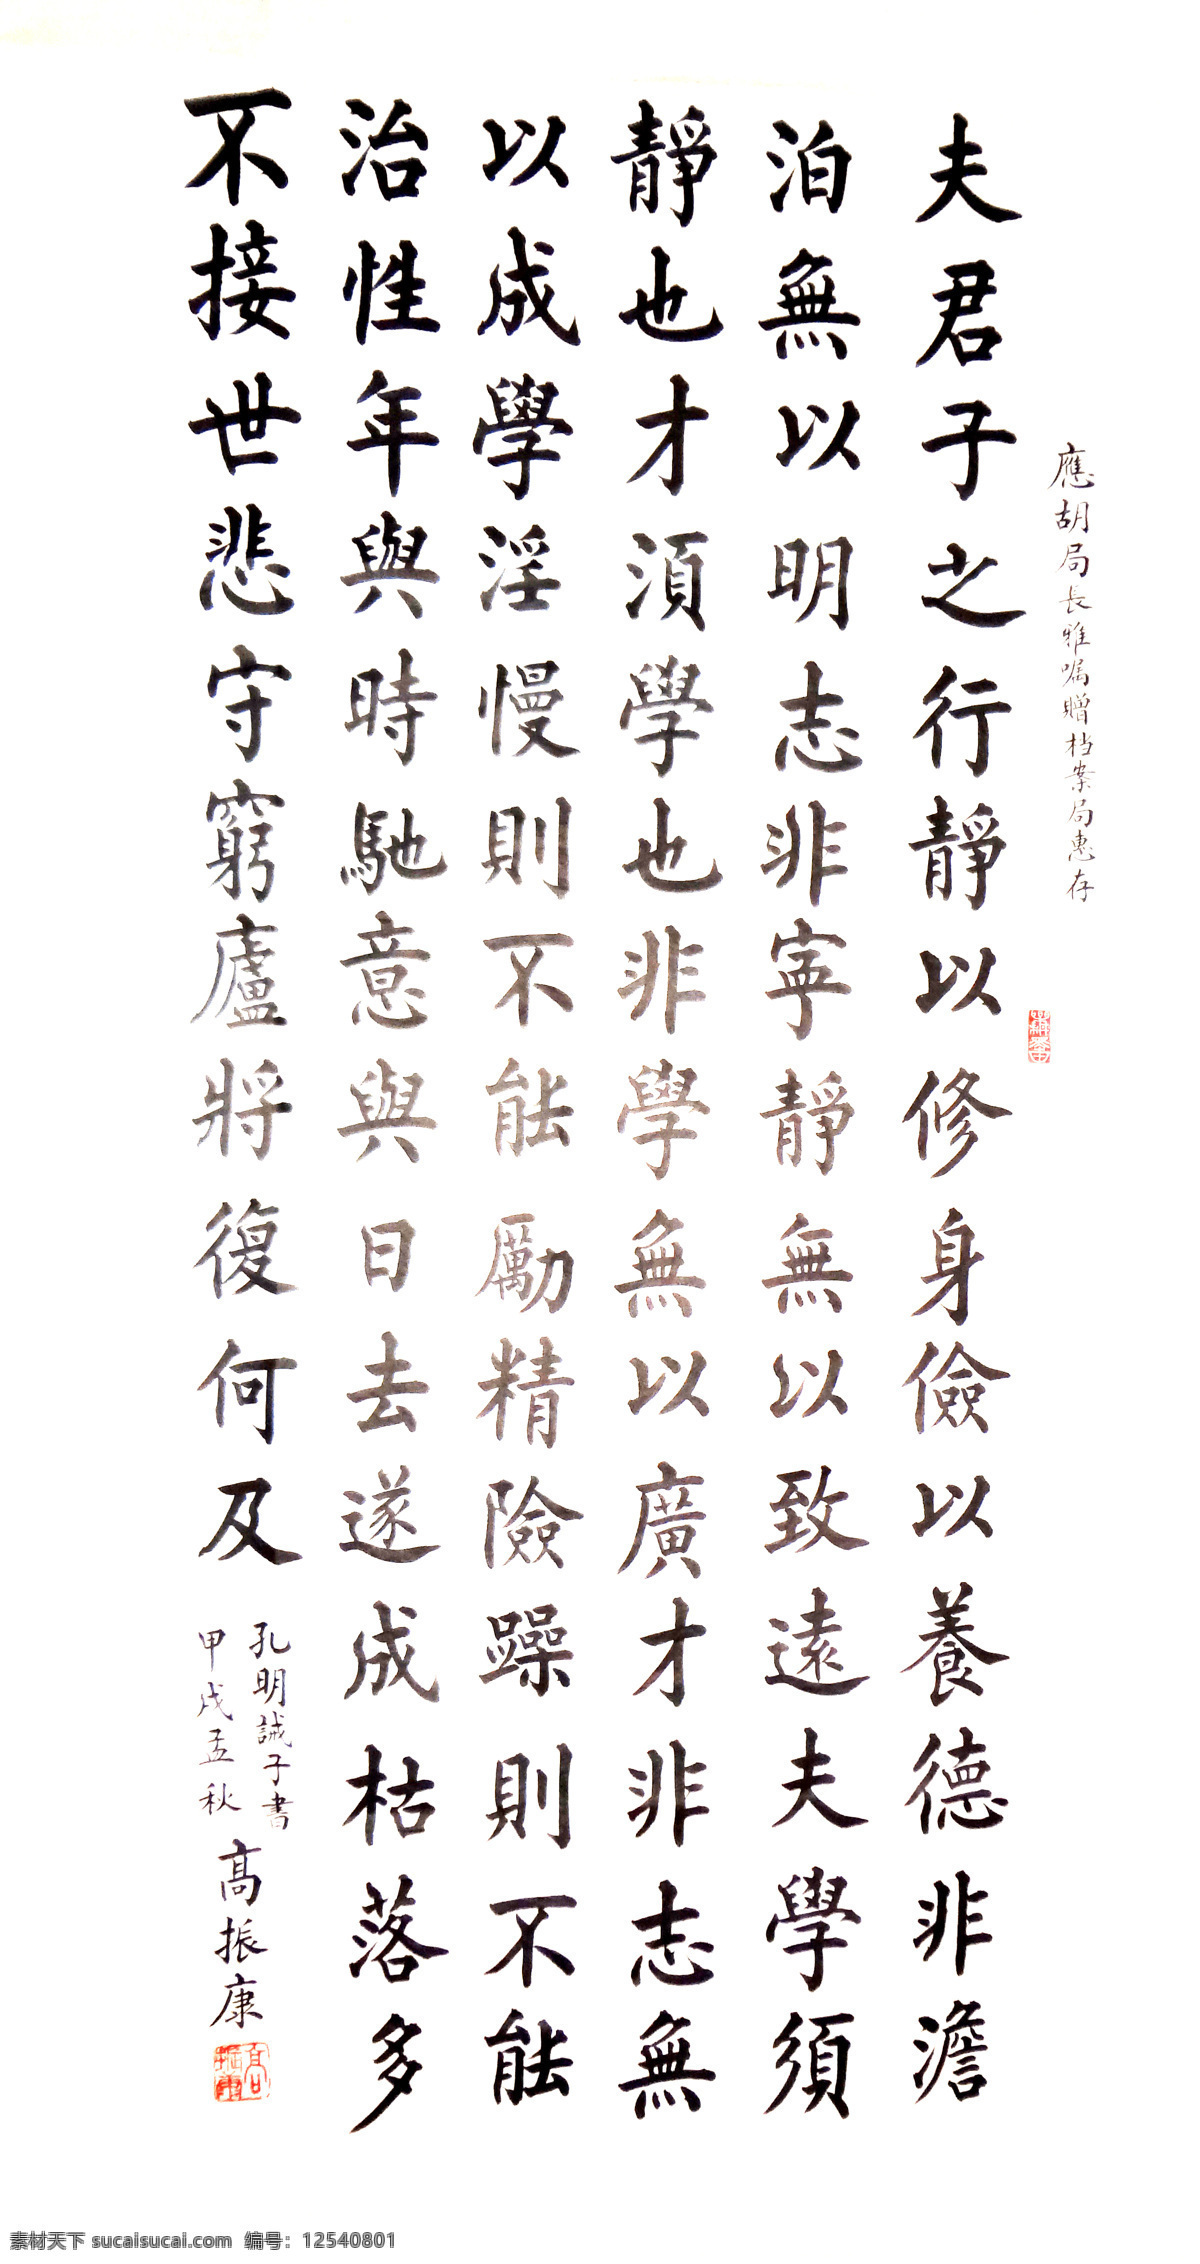 應胡局長雅嘱贈档案局惠存
夫君子之行靜以修身儉以養德非澹
泊無以明志非寧靜無以致遠夫學須
靜也才湏學也非學無以廣才非志無
以成學淫慢則不能勵精險躁則不能
治性年與時馳意與日去遂成枯落多
不接世悲守窮廬將復何及
孔明誡子書
甲戌孟秋
高振康
高振康
素材天下 sucaisucai.com 编号：12540801